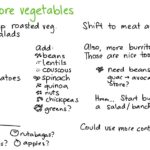 ore vegetables
p roasted veg
alads
add:
beans
lentils
couscous
spinach
quinoa
nuts
chickpeas
greens?
atoes
rutabagas?
? apples?
Shift to meat a
Also, more burrit
Those are nice to
need beans
guac + avoca
store?
Hmm.. Start bu
a salad/banch
Could use more con